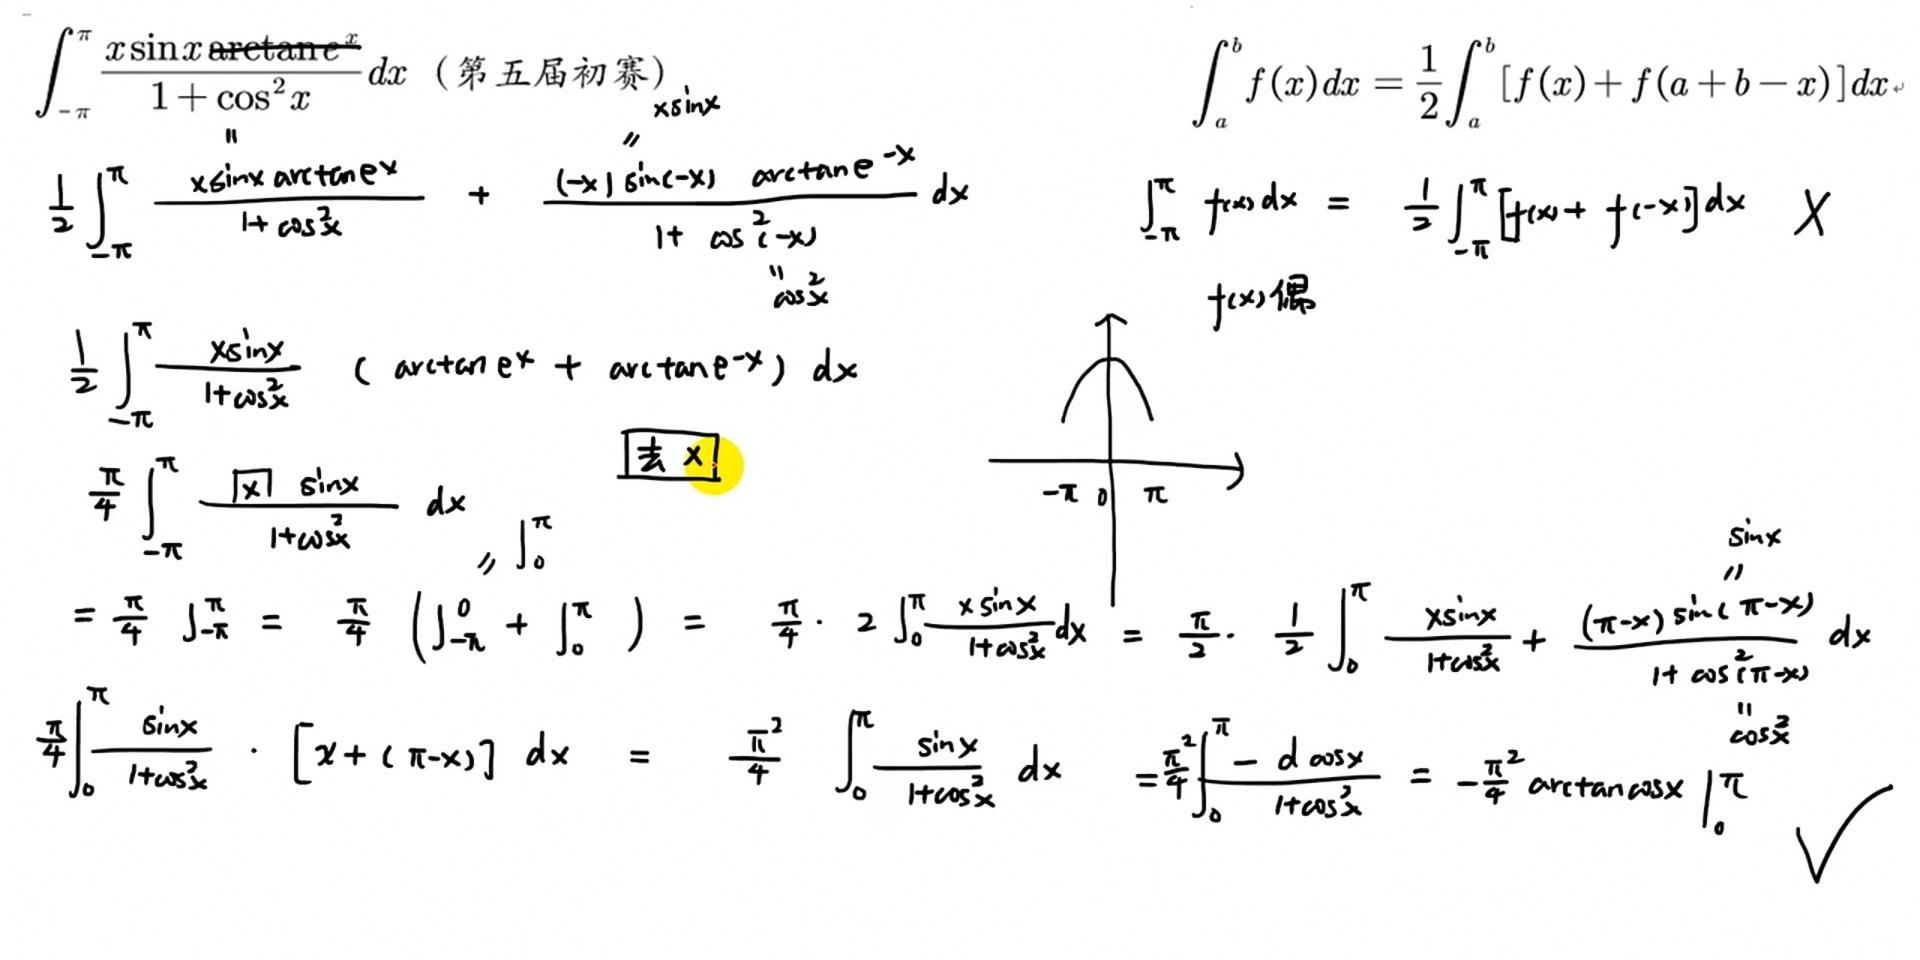 ∫_{-π}^{π} \frac{x sin x arctan e^x}{1 + cos² x} dx (第五届初赛)
∫_a^b f(x)dx = \frac{1}{2} ∫_a^b [f(x) + f(a + b − x)]dx
\frac{1}{2} ∫_{-π}^{π} \frac{x sinx arctan e^x}{1 + cos²x} + \frac{(-x) sin(-x) arctan e^{-x}}{1 + cos²(-x)} dx
〃 x sinx
〃 cos²x
∫_{-π}^{π} f(x) dx = \frac{1}{2} ∫_{-π}^{π} [f(x) + f(-x)] dx X
f(x) 偶
\frac{1}{2} ∫_{-π}^{π} \frac{x sinx}{1 + cos²x} ( arctan e^x + arctan e^{-x} ) dx
去 x
-π 0 π
\frac{π}{4} ∫_{-π}^{π} \frac{x sinx}{1 + cos²x} dx
〃 ∫_0^π
= \frac{π}{4} ∫_{-π}^{π} = \frac{π}{4} ( ∫_{-π}^0 + ∫_0^π ) = \frac{π}{4} · 2 ∫_0^π \frac{x sinx}{1 + cos²x} dx = \frac{π}{2} · \frac{1}{2} ∫_0^π \frac{x sinx}{1 + cos²x} + \frac{(π-x) sin(π-x)}{1 + cos²(π-x)} dx
〃 sinx
〃 cos²x
\frac{π}{4} ∫_0^π \frac{sinx}{1 + cos²x} · [x + (π-x)] dx = \frac{π²}{4} ∫_0^π \frac{sinx}{1 + cos²x} dx = \frac{π²}{4} ∫_0^π \frac{- d cosx}{1 + cos²x} = -\frac{π²}{4} arctan cosx |_0^π ✓